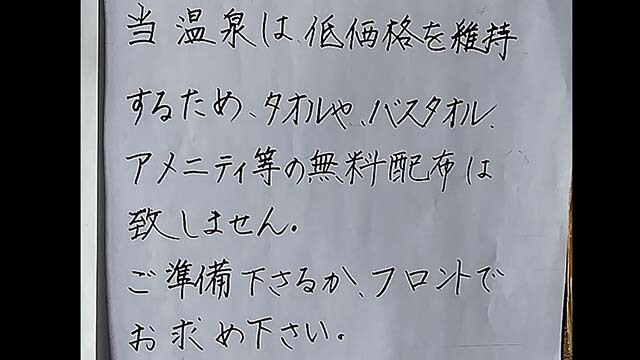 当温泉は、低価格を維持
するため、タオルや、バスタオル、
アメニティ等の無料配布は
致しません。
ご準備下さるか、フロントで
お求め下さい。